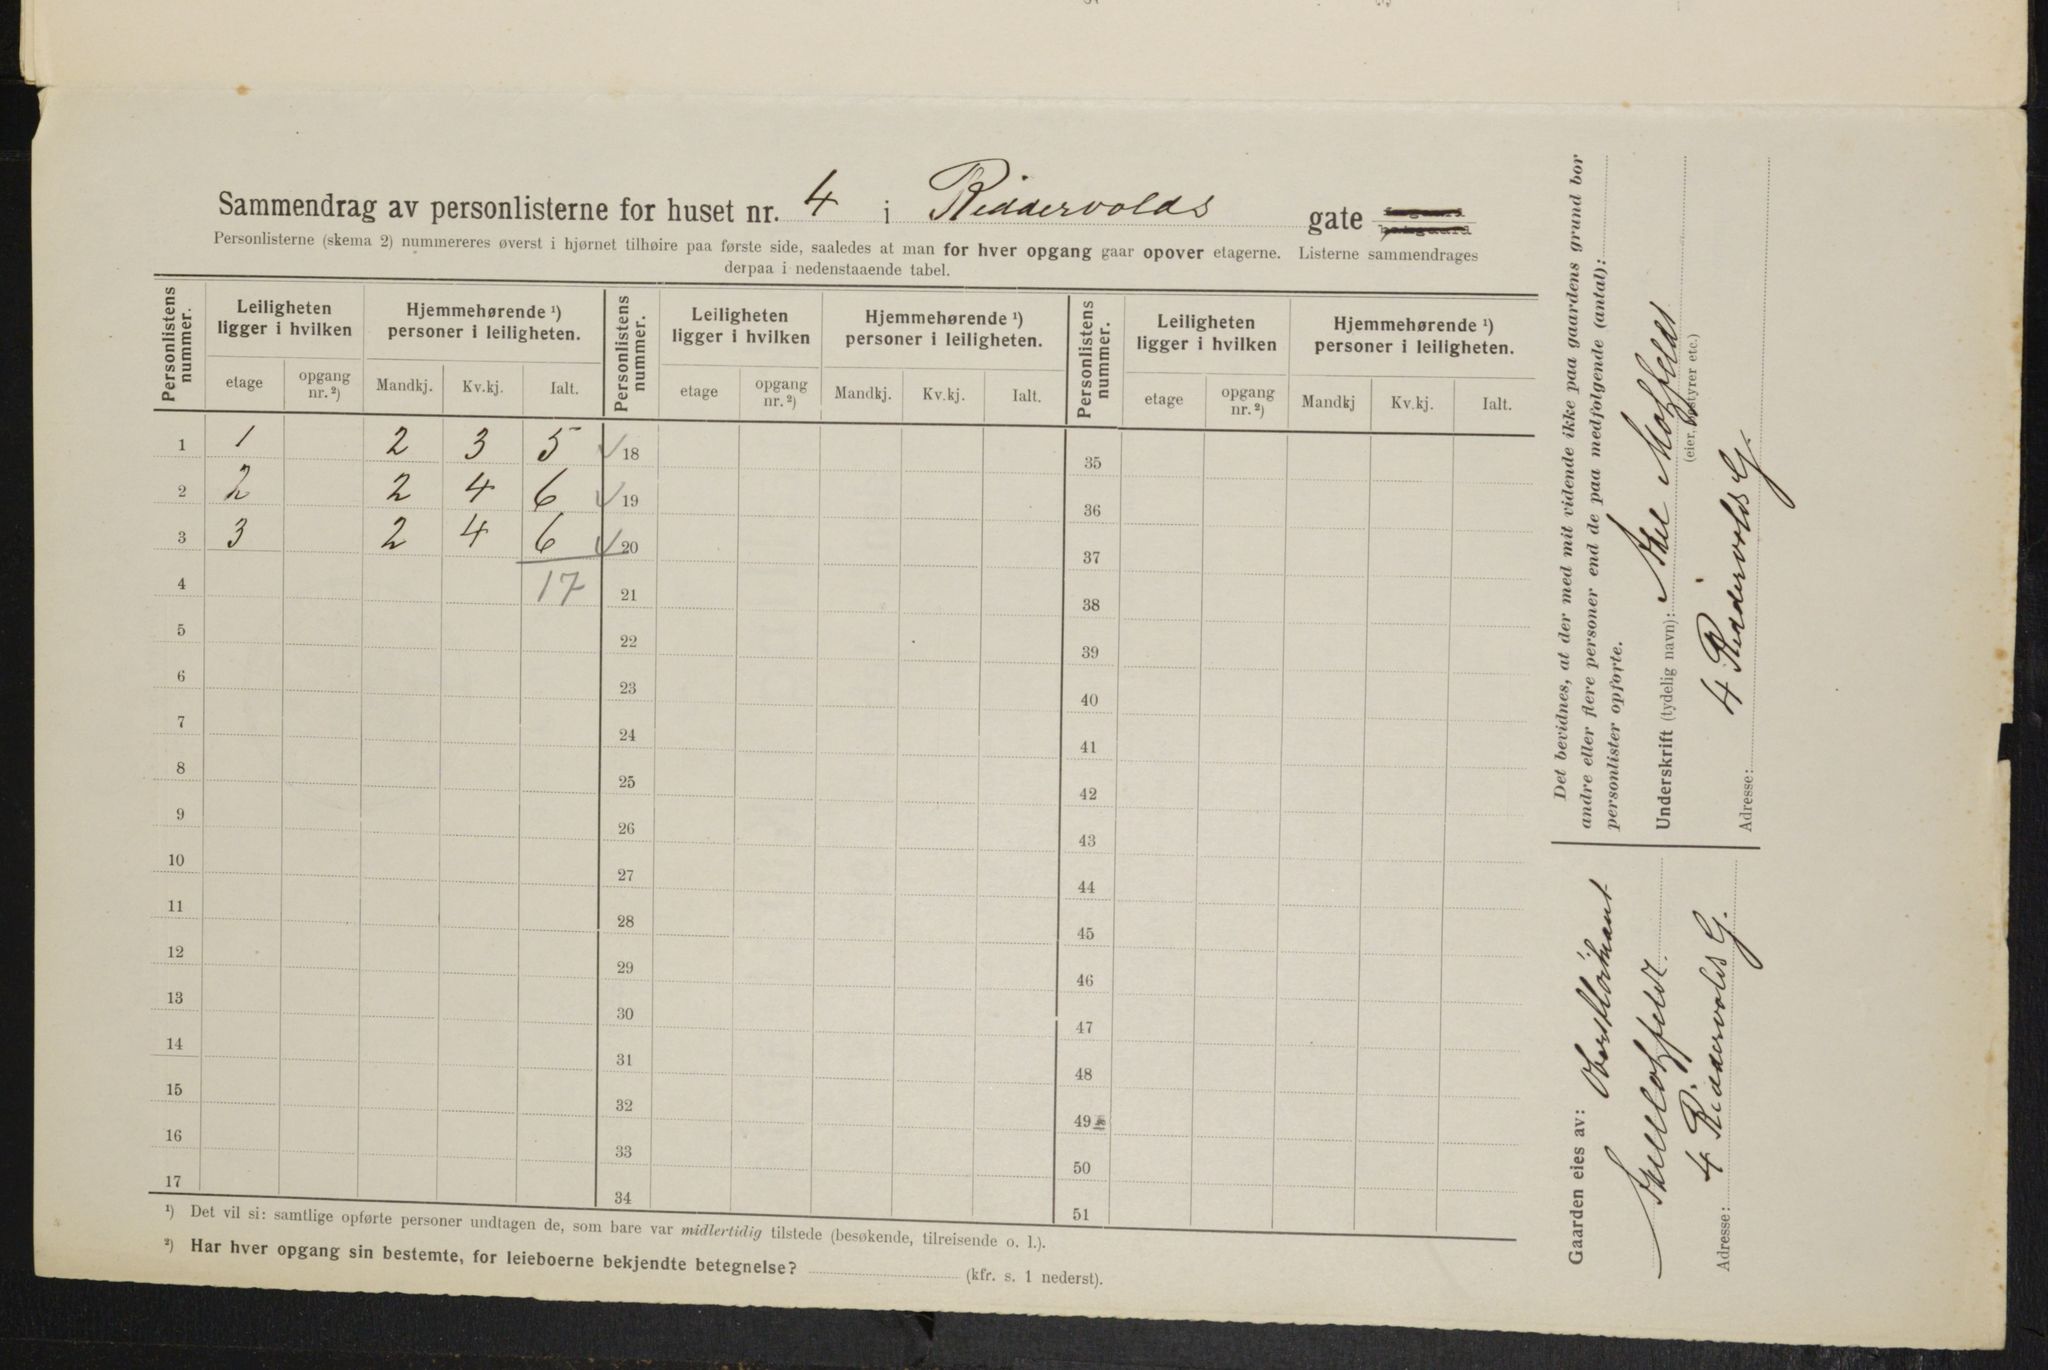 Sammendrag av personlisterne for huset nr. 4 i Riddervolds gate
Personlisterne (skema 2) nummereres øverst i hjørnet tilhøire paa første side, saaledes at man for hver opgang gaar opover etagerne. Listerne sammendrages
derpaa i nedenstaaende tabel.
Personlistens nummer. Leiligheten ligger i hvilken Hjemmehørende ¹) personer i leiligheten. Personlistens nummer. Leiligheten ligger i hvilken Hjemmehørende ¹) personer i leiligheten. Personlistens nummer. Leiligheten ligger i hvilken Hjemmehørende ¹) personer i leiligheten.
etage opgang nr. ²) Mandkj. Kv.kj. Ialt. etage opgang nr. ²) Mandkj. Kv.kj. Ialt. etage opgang nr. ²) Mandkj Kv.kj. Ialt.
1 1 2 3 5 ✓ 18 35
2 2 2 4 6 ✓ 19 36
3 3 2 4 6 ✓ 20 37
4 17 21 38
5 22 39
6 23 40
7 24 41
8 25 42
9 26 43
10 27 44
11 28 45
12 29 46
13 30 47
14 31 48
15 32 49
16 33 50
17 34 51
¹) Det vil si: samtlige opførte personer undtagen de, som bare var midlertidig tilstede (besøkende, tilreisende o. l.).
²) Har hver opgang sin bestemte, for leieboerne bekjendte betegnelse? (kfr. s. 1 nederst).
Det bevidnes, at der med mit vidende ikke paa gaardens grund bor
andre eller flere personer end de paa medfolgende (antal):
personlister opforte.
Underskrift (tydelig navn):
(eier, bestyrer etc.)
4 Riddervolds G.
Adresse:
Gaarden eies av:
4 Riddervolds G.
Adresse: